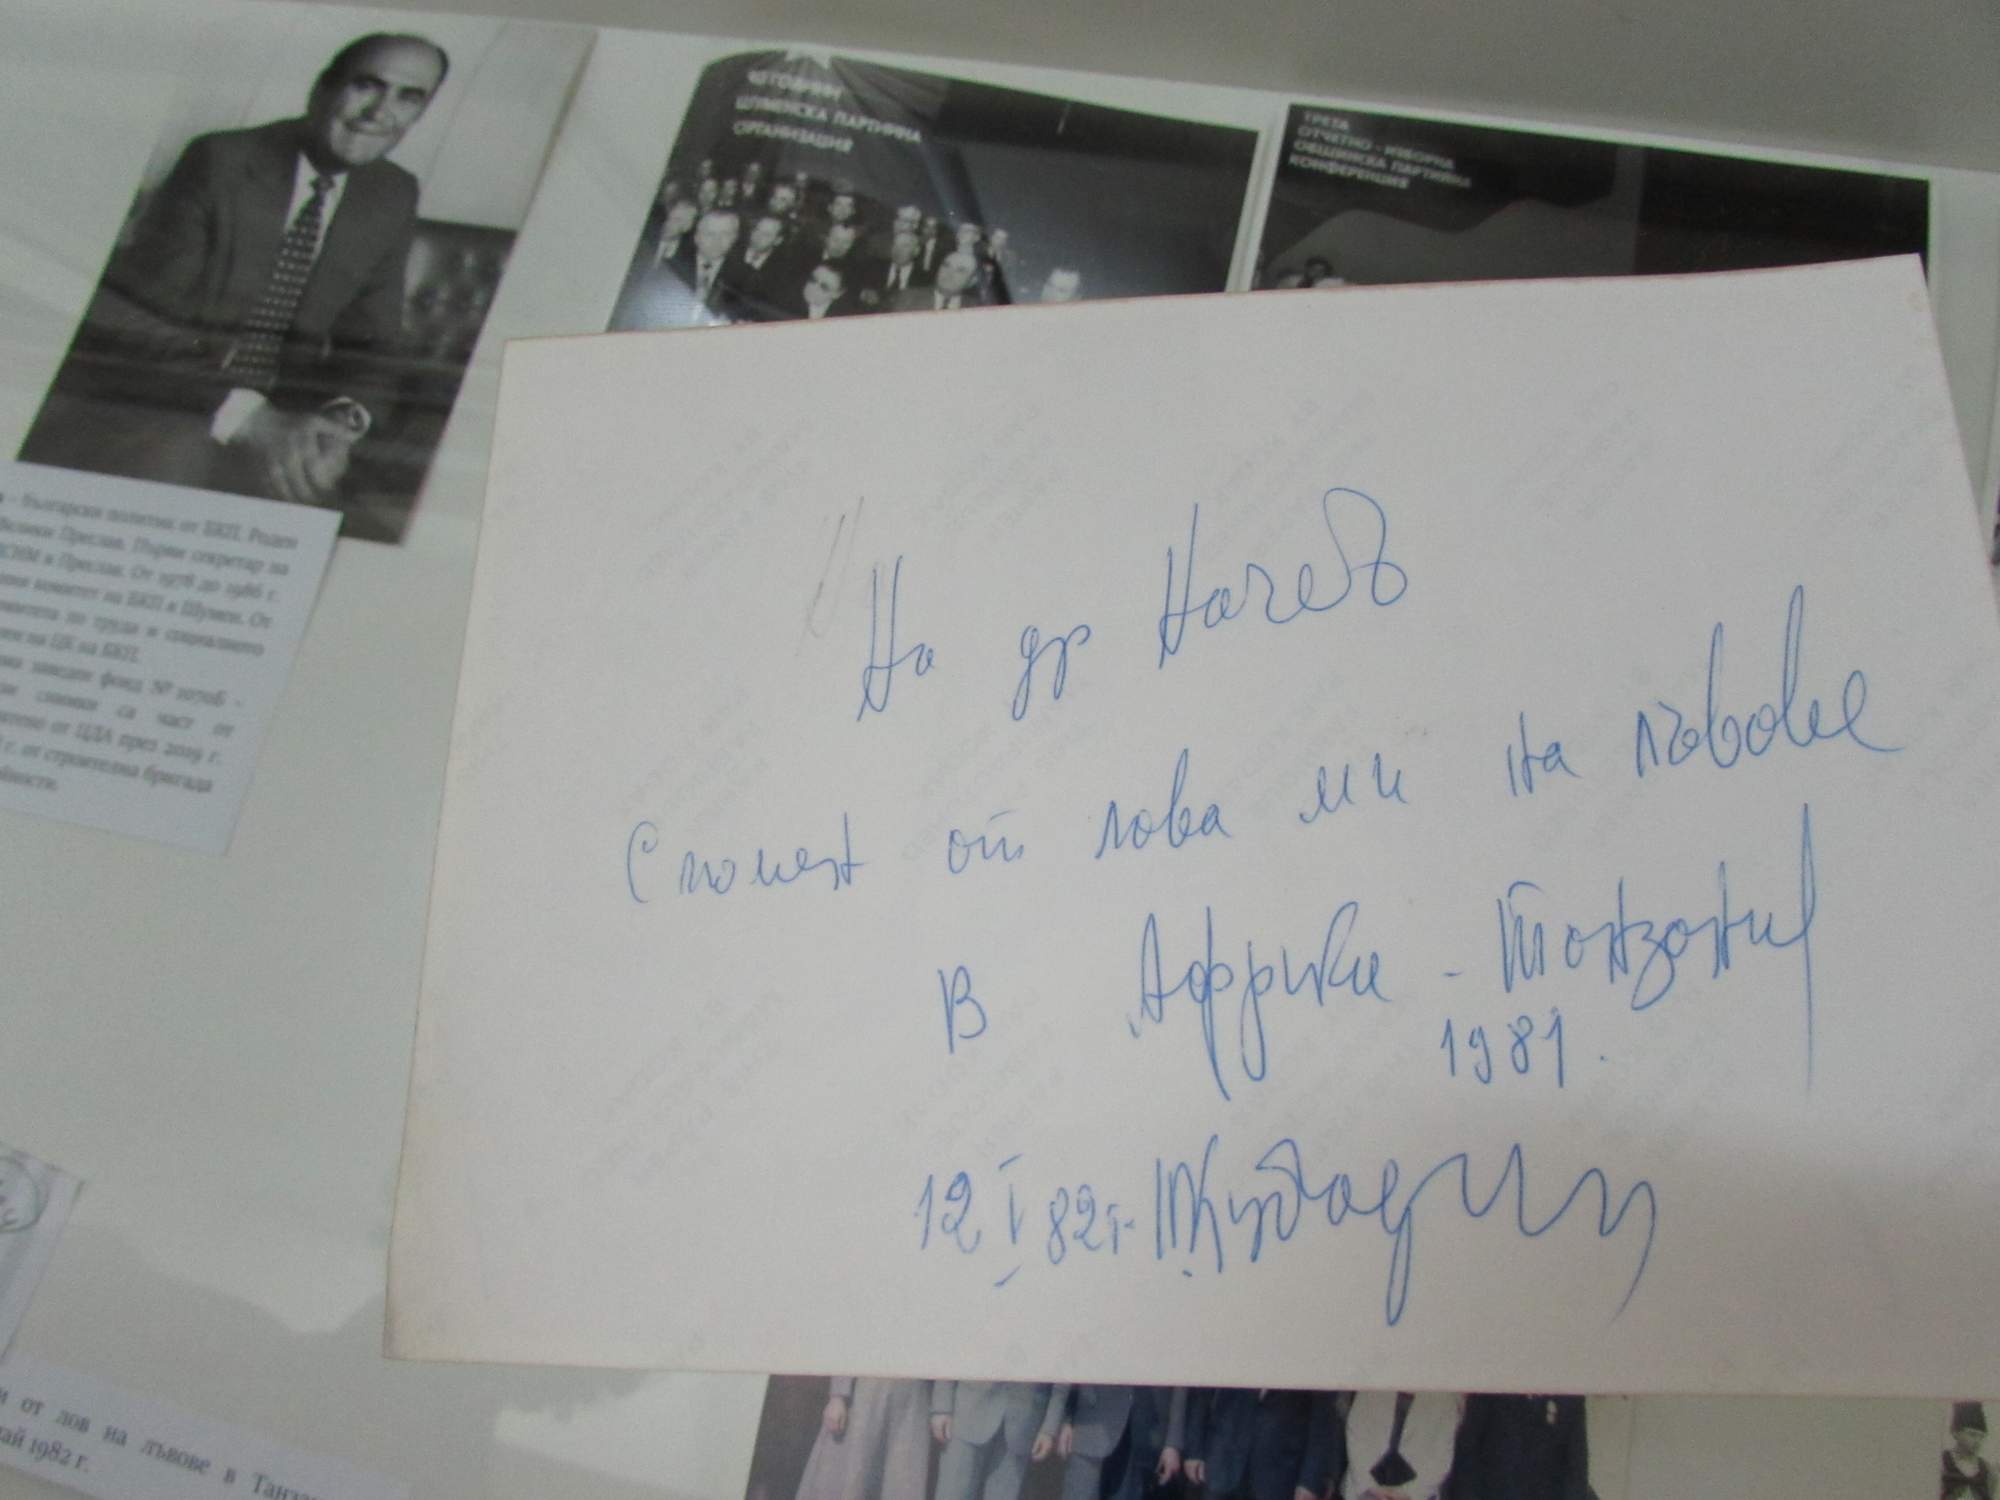 40 ГОДИНИ
ШУМЕНСКА ПАРТИЙНА
ОРГАНИЗАЦИЯ
ТРЕТА
ОТЧЕТНО - ИЗБОРНА
ОБЩИНСКА ПАРТИЙНА
КОНФЕРЕНЦИЯ
- български политик от БКП. Роден
Велики Преслав. Първи секретар на
в Преслав. От 1978 до 1986 г.
комитет на БКП в Шумен. От
по труда и социалното
на ЦК на БКП.
фонд №
снимки са част от
от ЦДА през 2019 г.
г. от строителна бригада
На др Начев
Спомен от лова ми на лъвове
в Африка - Танзания
1981.
12 I 82 г.
от лов на лъвове в
1982 г.